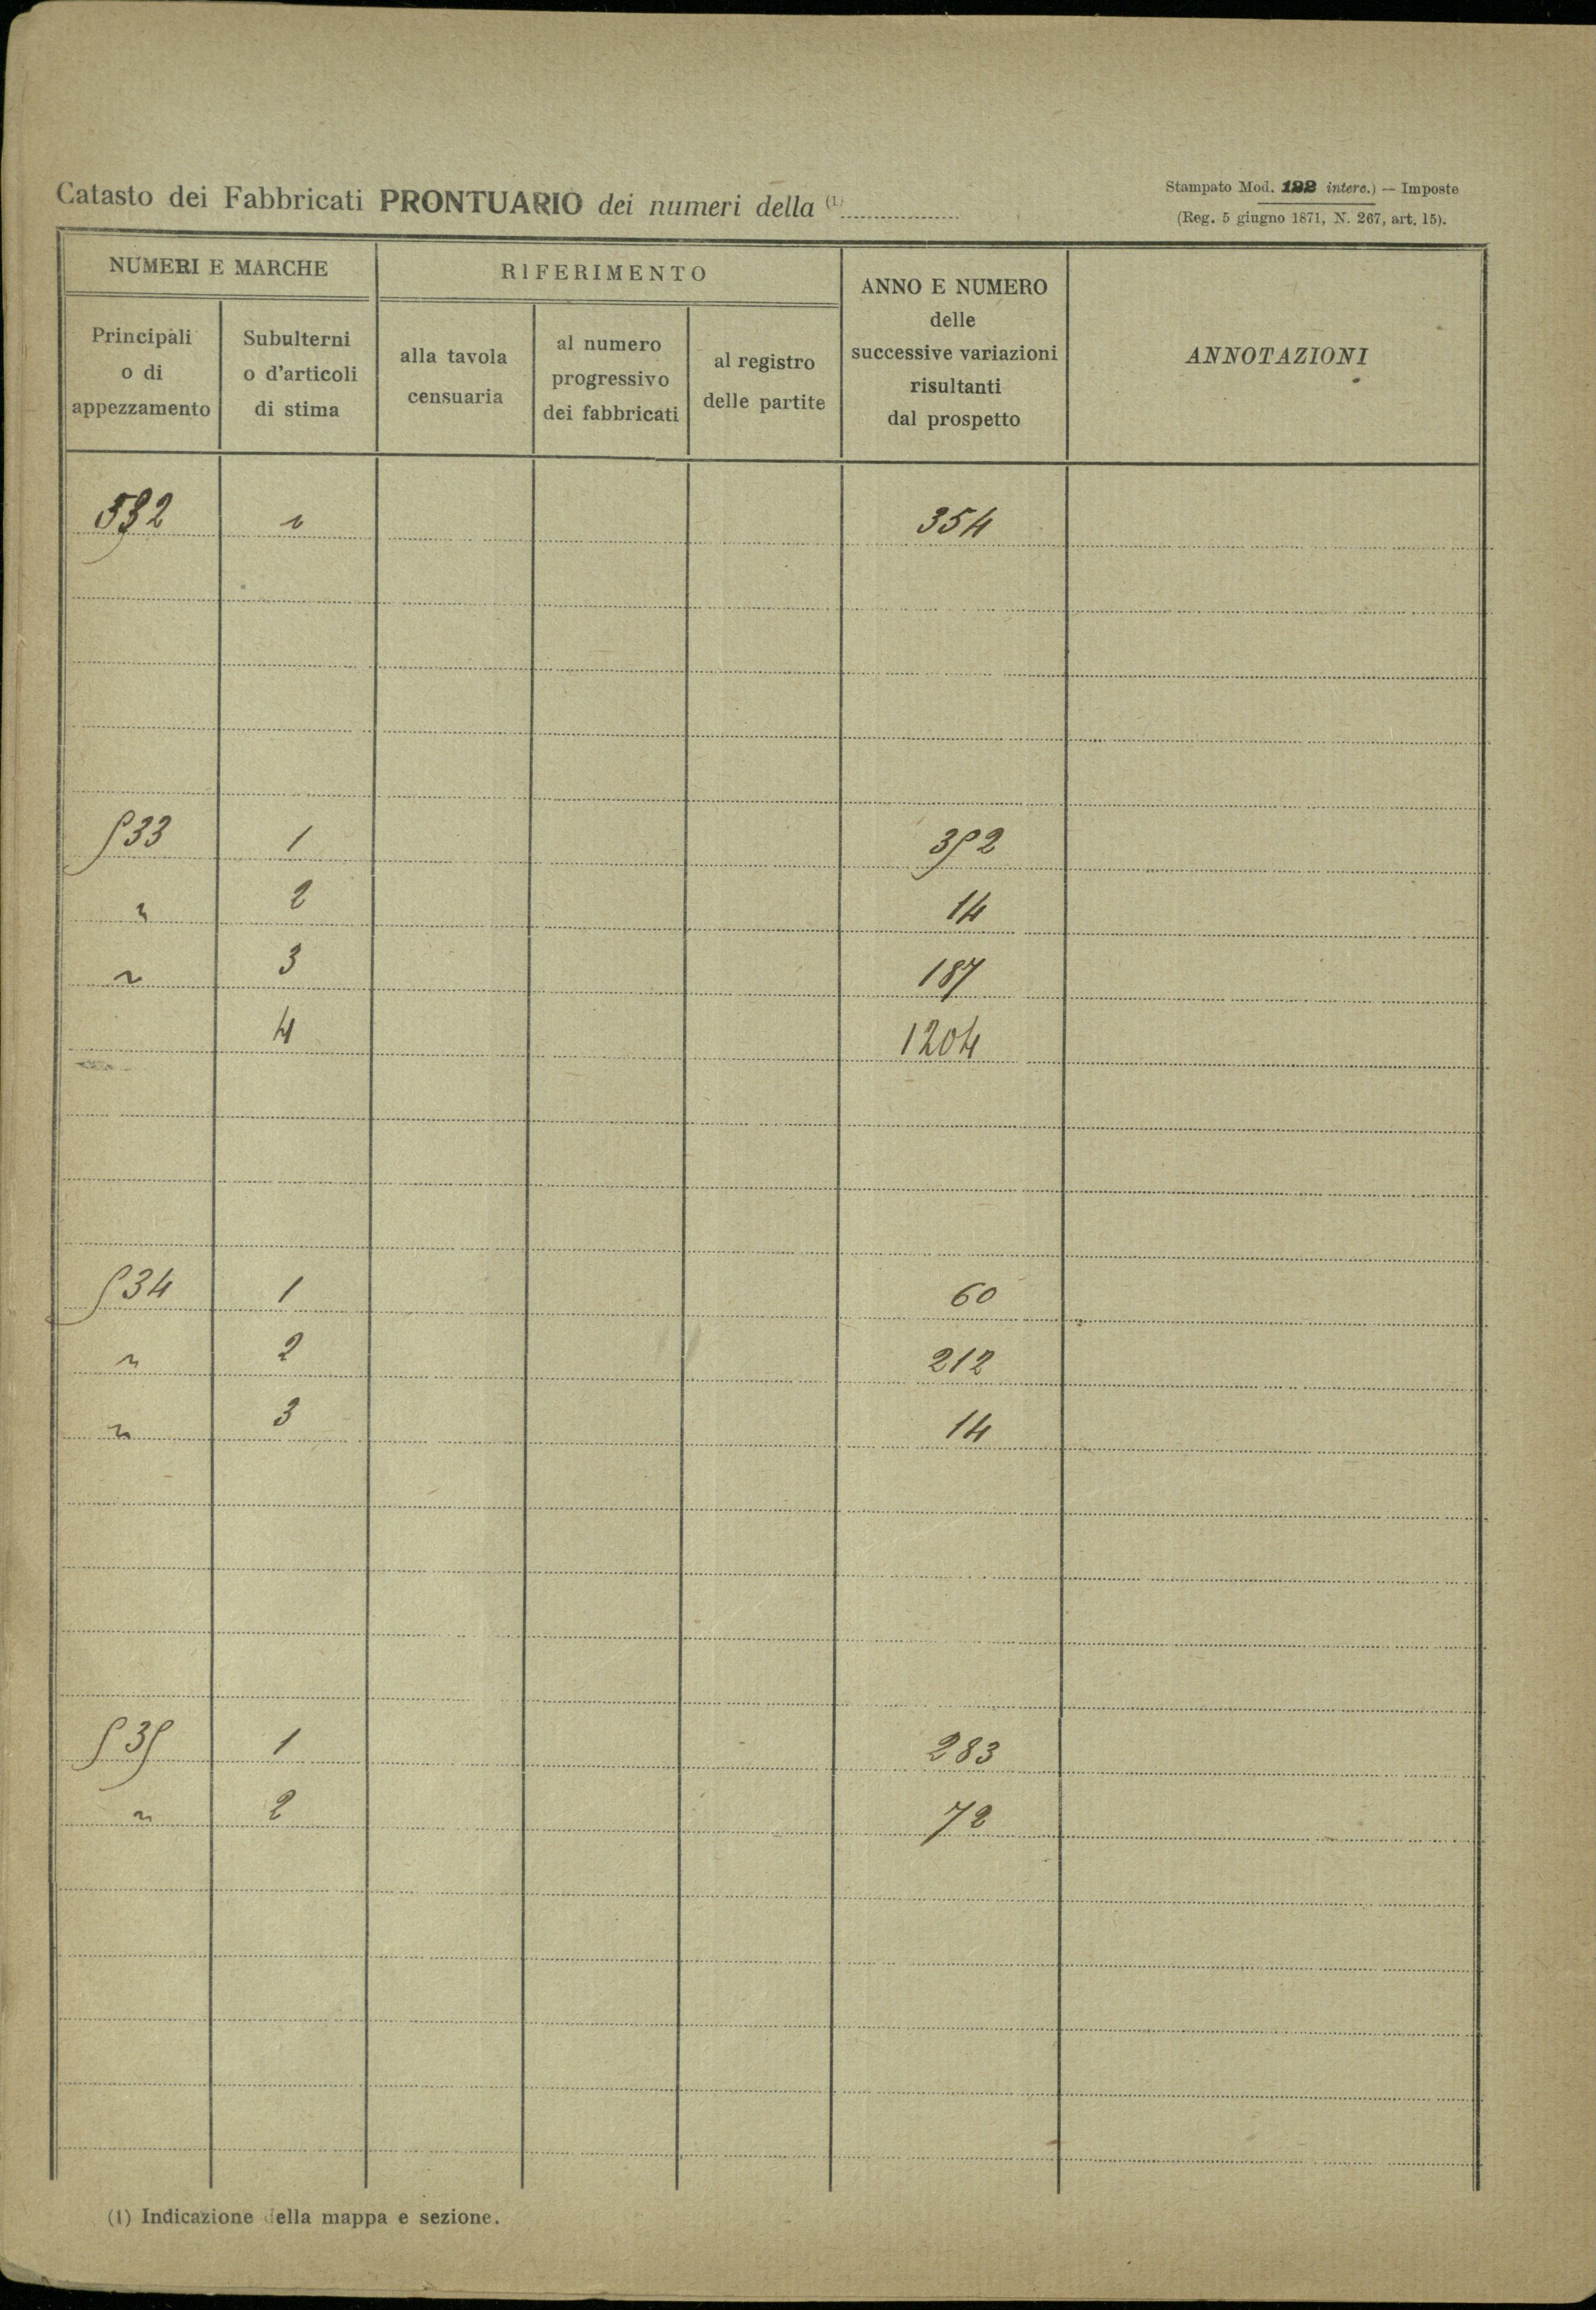 Catasto dei Fabbricati PRONTUARIO dei numeri della (1)
Stampato Mod. 122 interc.) — Imposte
(Reg. 5 giugno 1871, N. 267, art. 15).
NUMERI E MARCHE
RIFERIMENTO
ANNO E NUMERO
delle
successive variazioni
risultanti
dal prospetto
ANNOTAZIONI
Principali
o di
appezzamento
Subulterni
o d'articoli
di stima
alla tavola
censuaria
al numero
progressivo
dei fabbricati
al registro
delle partite
532 354
533 1 352
" 2 14
" 3 187
4 1204
534 1 60
" 2 212
" 3 14
535 1 283
" 2 72
(1) Indicazione della mappa e sezione.